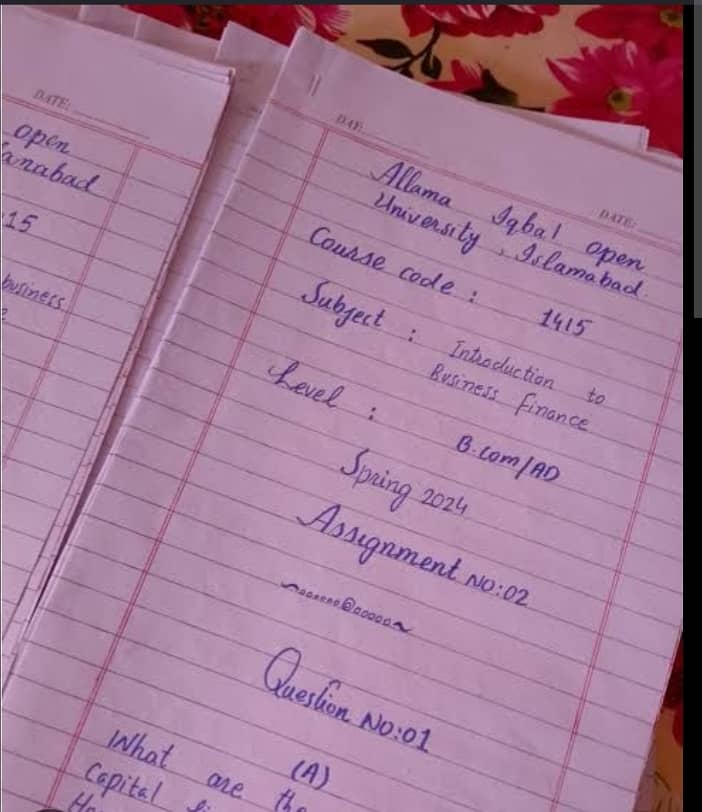 DATE:
open
15
business
DATE:
DATE:
Allama Iqbal open
University, Islamabad.
Course code : 1415
Subject : Introduction to
Business Finance
Level : B.com/AD
Spring 2024
Assignment NO:02
Question NO:01
(A)
What are the
Capital